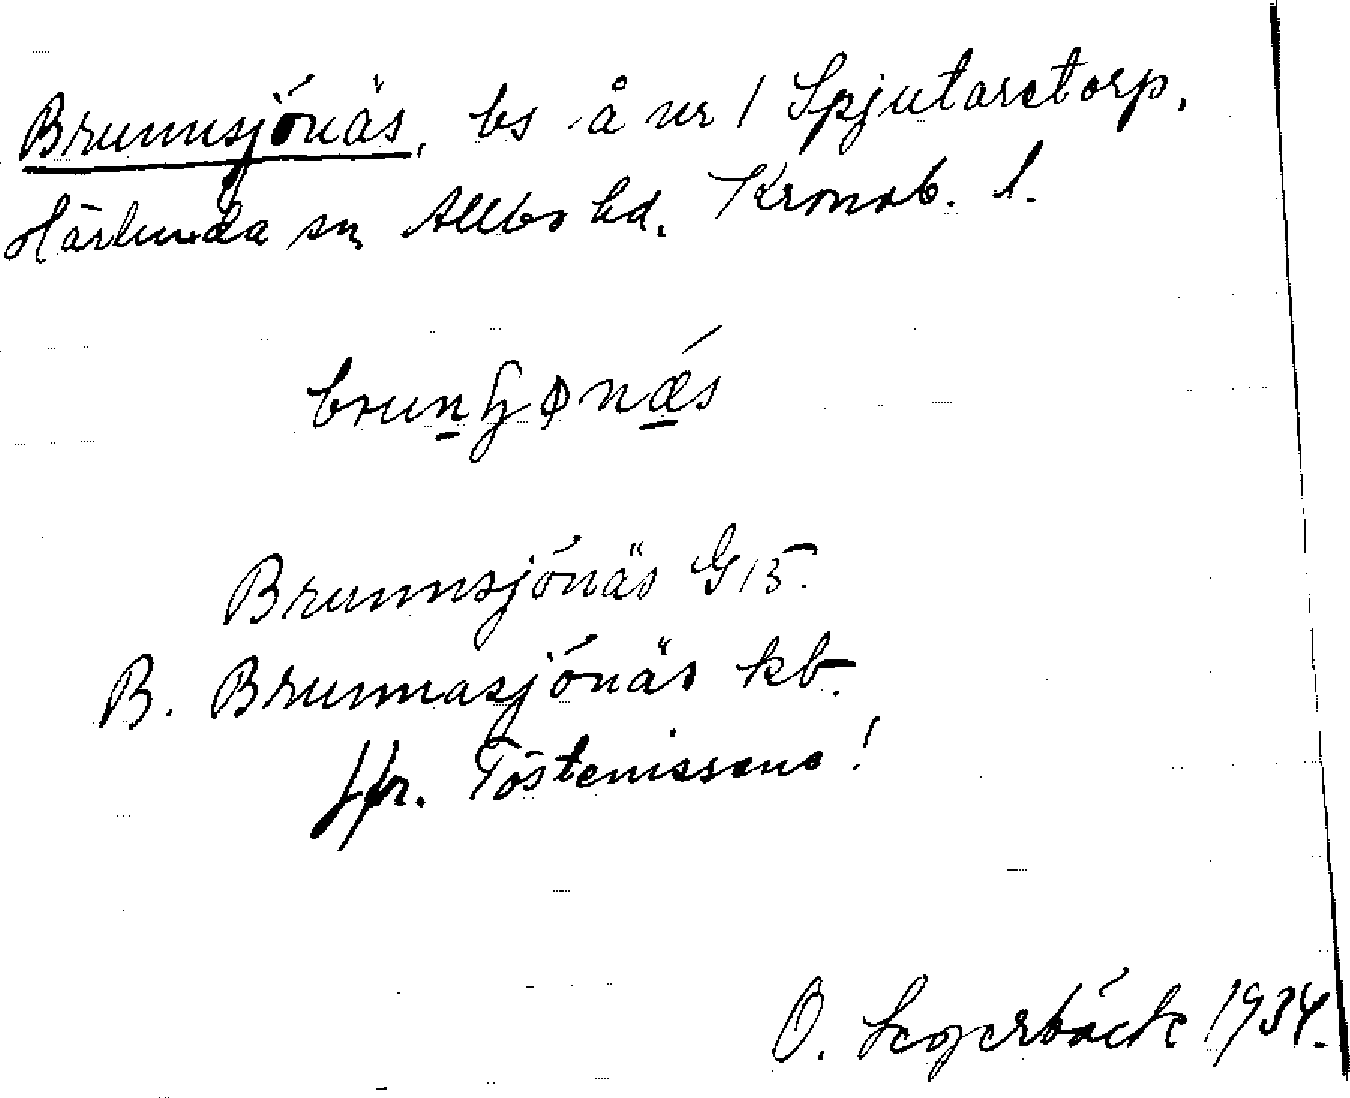 Brunnsjönäs, bs å nr 1 Spjutaretorp.
Härlunda sn Allbo hd. Kronob. l.
Brunnsjönäs G 15.
B. Brunnasjönäs kb.
Jfr. Töstenissene!
O. Segerbäck 1934.